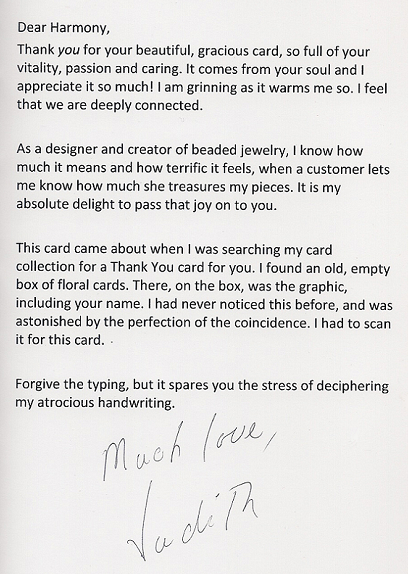 Dear Harmony,
Thank you for your beautiful, gracious card, so full of your
vitality, passion and caring. It comes from your soul and I
appreciate it so much! I am grinning as it warms me so. I feel
that we are deeply connected.
As a designer and creator of beaded jewelry, I know how
much it means and how terrific it feels, when a customer lets
me know how much she treasures my pieces. It is my
absolute delight to pass that joy on to you.
This card came about when I was searching my card
collection for a Thank You card for you. I found an old, empty
box of floral cards. There, on the box, was the graphic,
including your name. I had never noticed this before, and was
astonished by the perfection of the coincidence. I had to scan
it for this card.
Forgive the typing, but it spares you the stress of deciphering
my atrocious handwriting.
Much love,
Judith